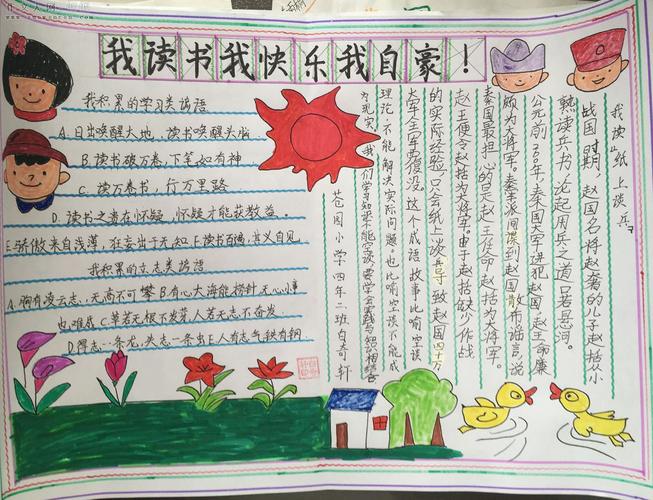 我读书我快乐我自豪!
我积累的学习类谚语
A.日出唤醒大地,读书唤醒头脑
B.读书破万卷,下笔如有神
C.读万卷书,行万里路
D.读书之者在怀疑,怀疑才能获教益。
E.骄傲来自浅薄,狂妄出于无知 F.读书百遍,其义自见
我积累的立志类谚语
A.胸有凌云志,无高不可攀 B.有心大海能捞针 无心小事
也难成 C.草若无根不发芽 人若无志不奋发
D.得志一条龙,失志一条虫 E.人有志气 铁有钢
我读《纸上谈兵》
战国时期,赵国名将赵奢的儿子赵括从小
熟读兵书,论起用兵之道口若悬河。
公元前300年,秦国大军进犯赵国,赵王命廉
颇为大将军。秦军派间谍到赵国散布谣言,说
秦国最担心的是赵王任命赵括为大将军。
赵王便令赵括为大将军。由于赵括缺少作战
的实际经验,只会纸上谈兵,导致赵国四十万
大军全军覆没。这个成语故事比喻空谈
理论,不能解决实际问题,也比喻空谈不能成
为现实。我们学习知识不能空谈,要学会实践与知识相结合
苍园小学四年二班白奇轩